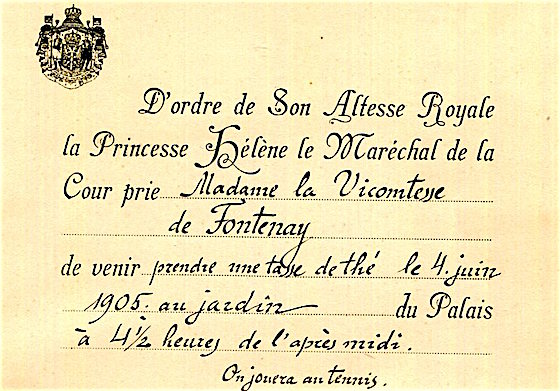 D'ordre de Son Altesse Royale
la Princesse Hélène le Maréchal de la
Cour prie Madame la Vicomtesse
de Fontenay
de venir prendre une tasse de thé le 4. juin
1905. au jardin du Palais
à 4 1/2 heures de l'après midi.
On jouera au tennis.